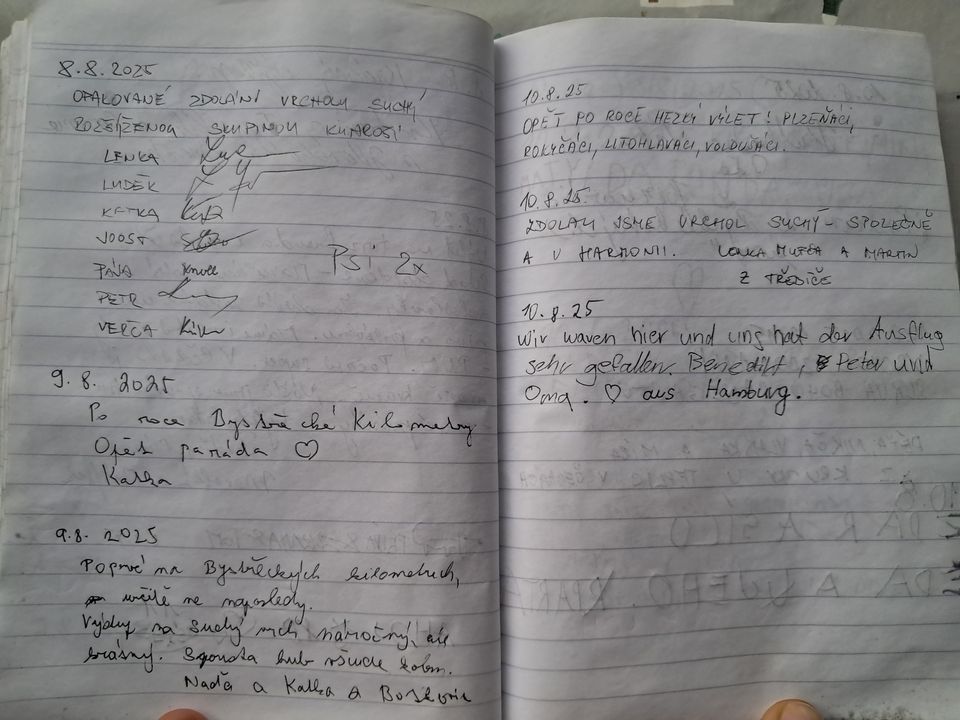 8.8.2025
OPAKOVANÉ ZDOLÁNÍ VRCHOLU SUCHÝ
ROZŠÍŘENOU SKUPINOU
LENKA
LUDĚK
KATKA
JOOST
PÁJA
PETR
VERČA
Psi 2x
9.8. 2025
Po roce Bystřecké Kilometry
Opět paráda ♡
Katka
9.8. 2025
Poprvé na Bystřeckých kilometrech,
určitě ne naposledy.
Výdup na Suchý vrch náročný, ale
krásný. Spousta hub všude kolem.
Naďa a Katka
10.8.25
OPĚT PO ROCE HEZKÝ VÝLET! PLZEŇÁCI,
ROKYČÁCI, LITOHLAVÁCI, VOLDUŠÁCI.
10.8.25.
ZDOLALI JSME VRCHOL SUCHÝ - SPOLEČNĚ
A V HARMONII. LENKA A MARTIN
Z TŘEBÍČE
10.8.25
Wir waren hier und uns hat der Ausflug
sehr gefallen. Benedikt, Peter und
Oma. ♡ aus Hamburg.